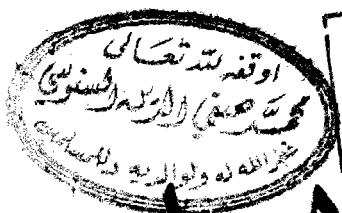 اوقفه لله تعالى
محمد حنفي الزلمة السنوسي
غفر الله له ولوالديه وللمسلمين